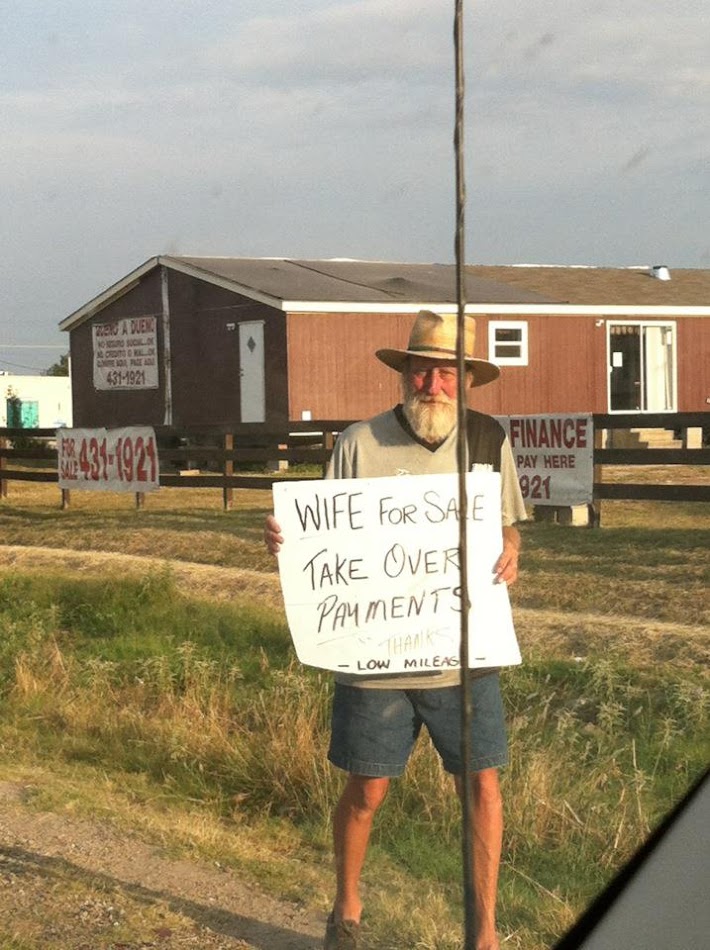 DUENO A DUENO
NO SEGURO SOCIAL..OK
NO CREDITO O MAL..OK
PAGE AQUI
431-1921
FOR
SALE 431-1921
FINANCE
PAY HERE
921
WIFE FOR SALE
TAKE OVER
PAYMENTS
"THANKS
- LOW MILEAGE -